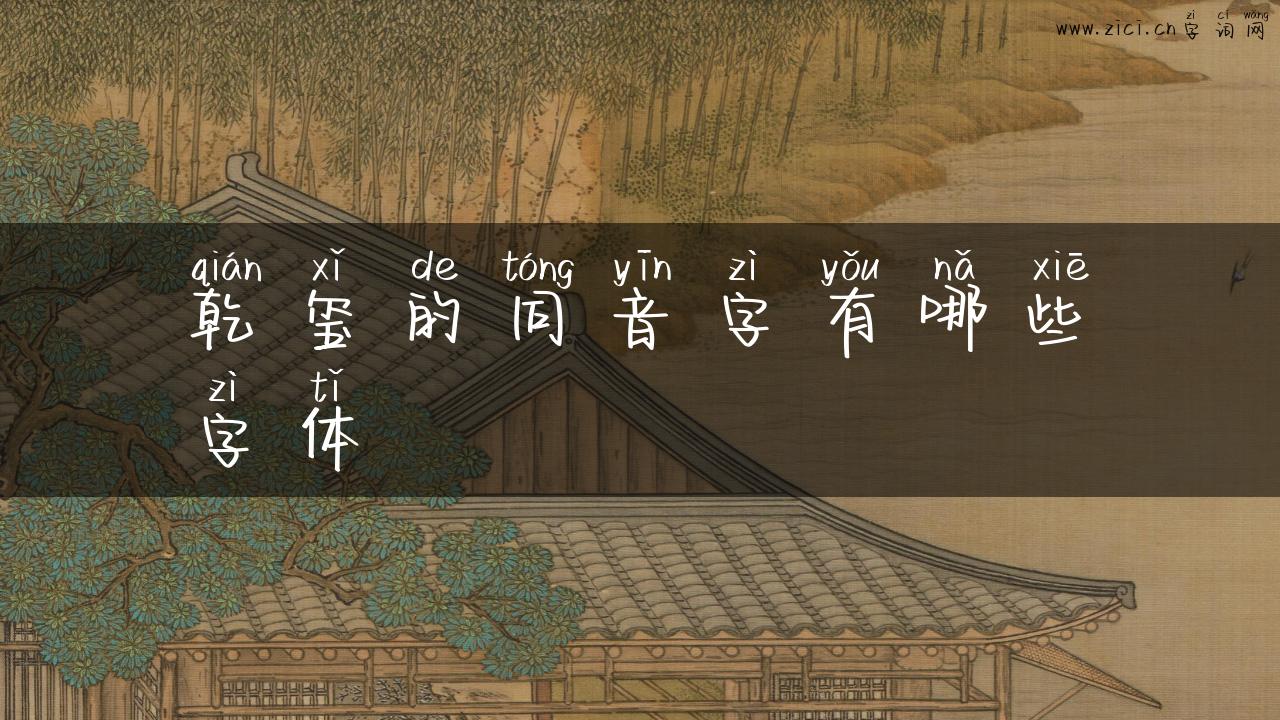 zì cí wǎng
www.zici.cn字词网
qián xǐ de tóng yīn zì yǒu nǎ xiē
乾玺的同音字有哪些
zì tǐ
字体